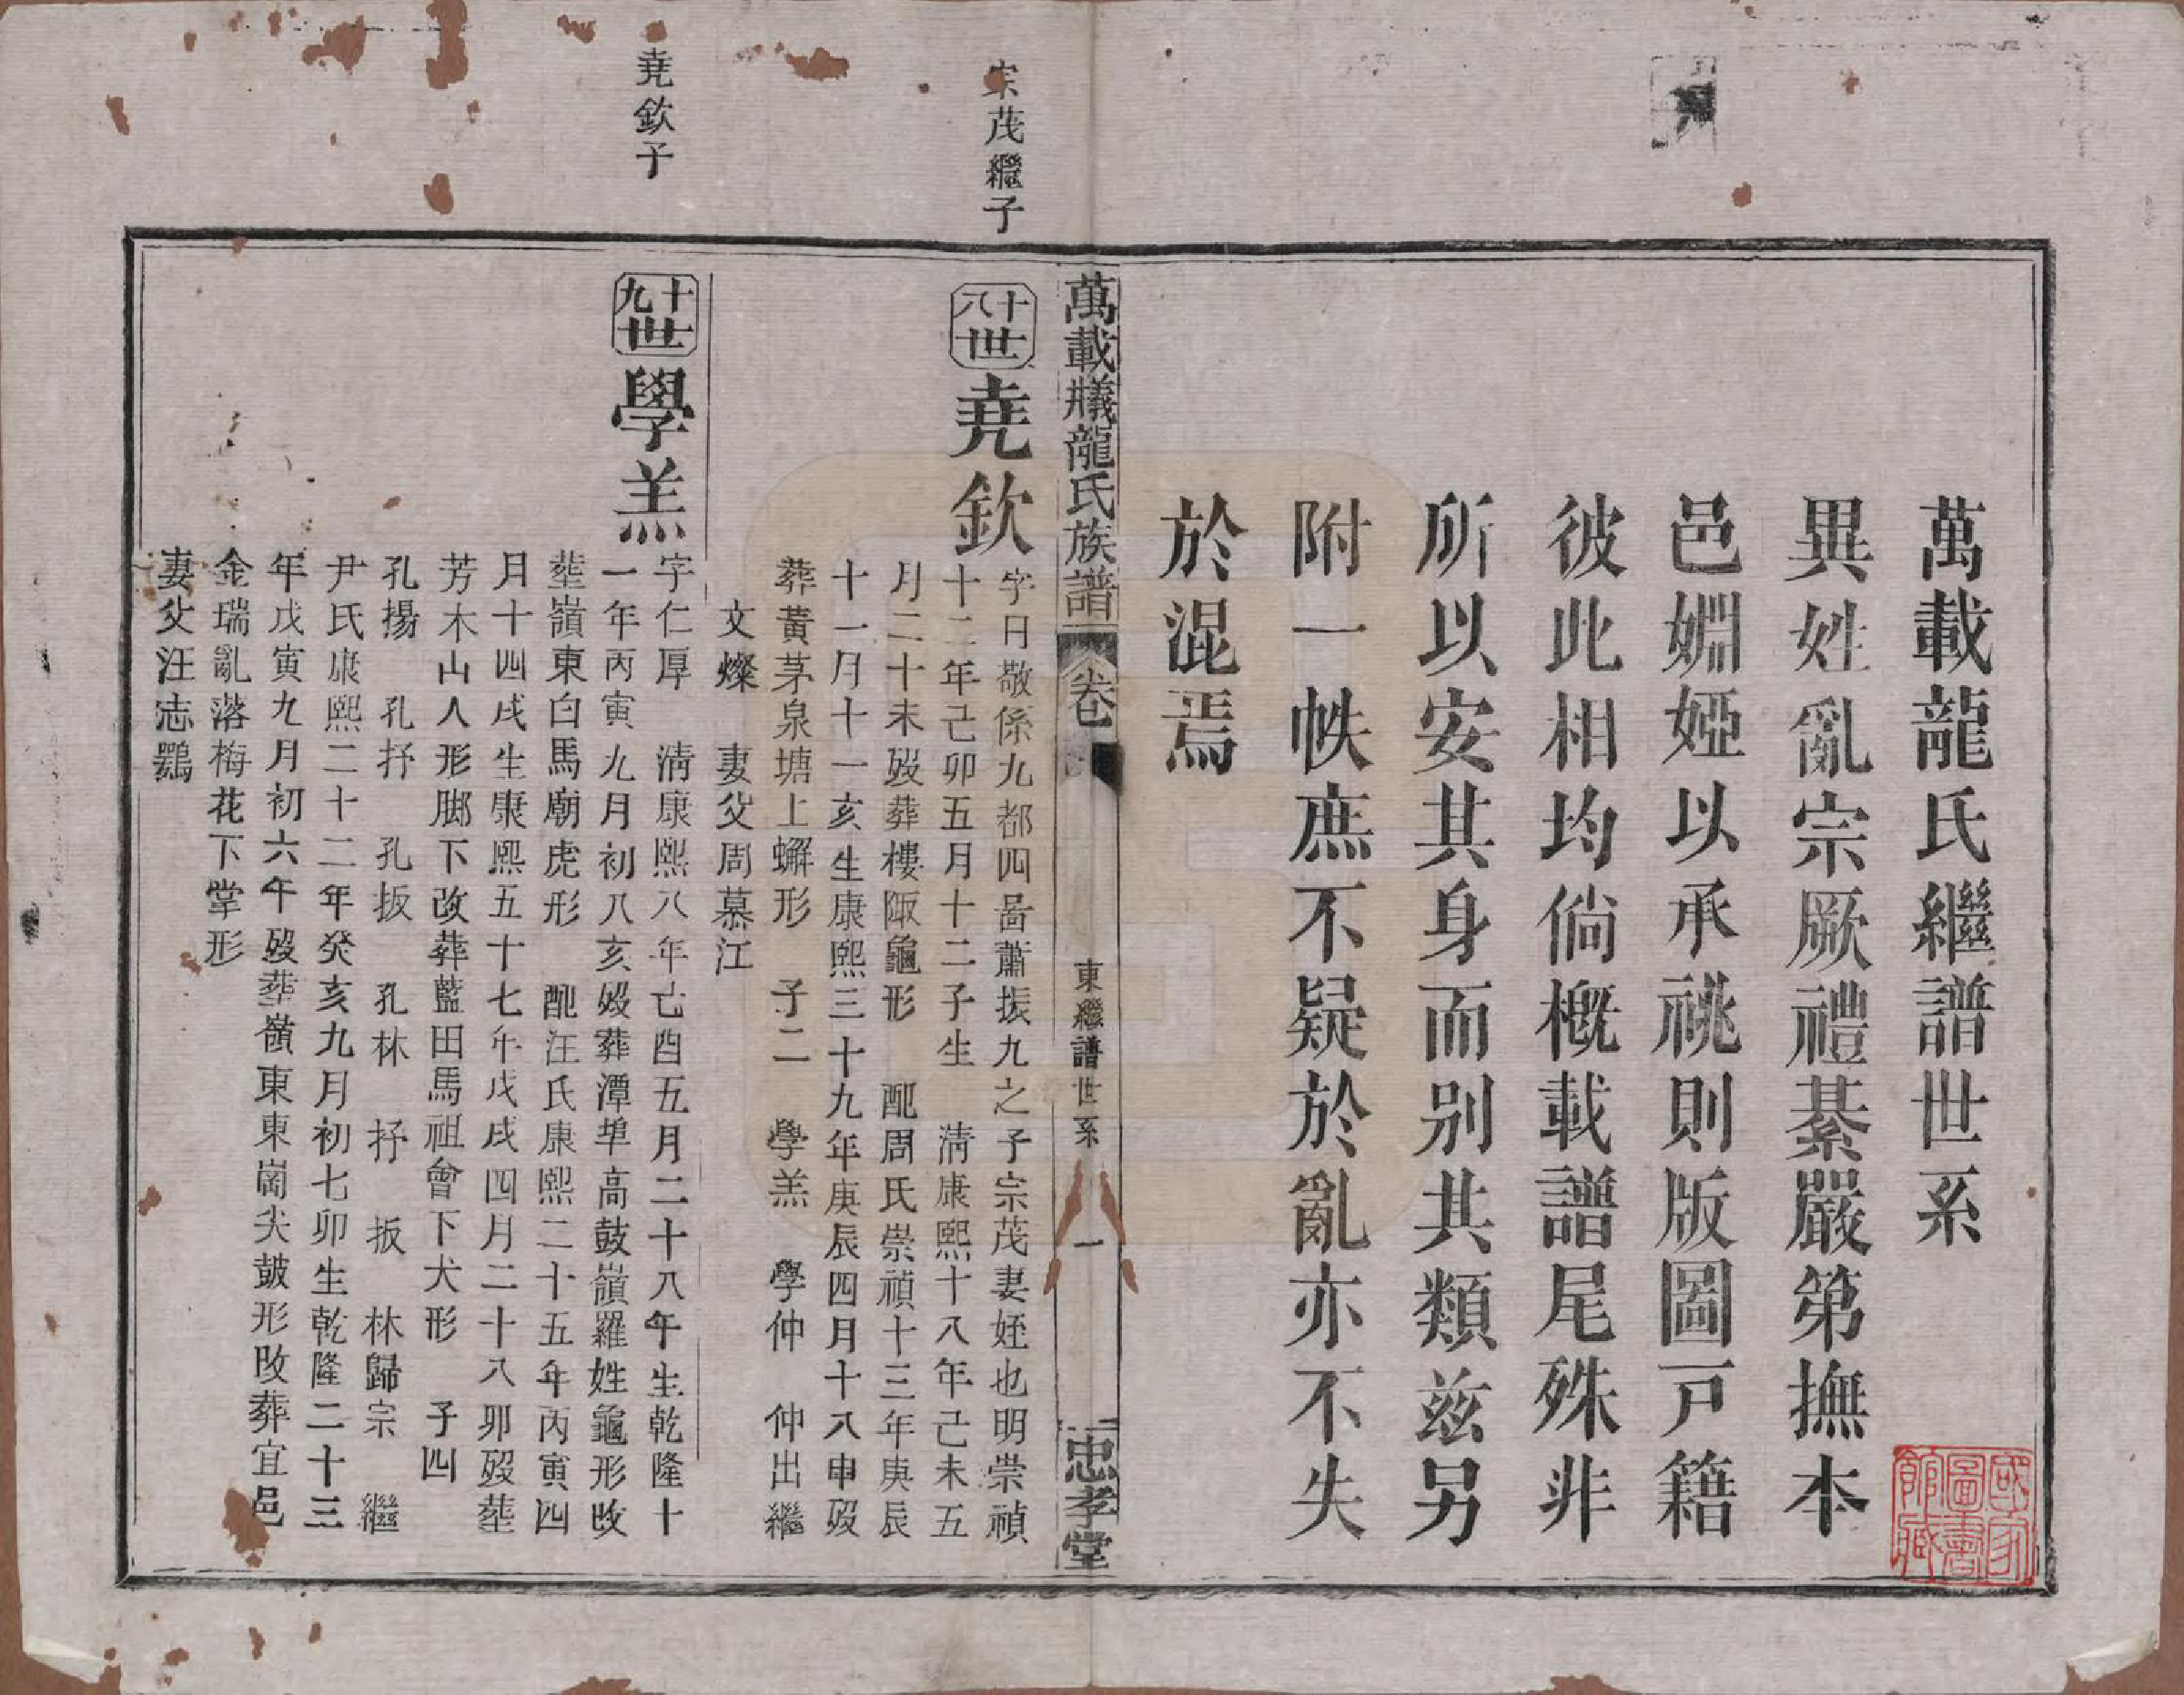 萬載龍氏繼譜世系
異姓亂宗厥禮綦嚴第撫本
邑婣婭以承祧則版圖戸籍
彼此相均倘概載譜尾殊非
所以安其身而别其類兹另
附一帙庶不疑於亂亦不失
於混焉
國家圖書館藏
萬載㸿龍氏族譜
卷
東繼譜世系
一
忠孝堂
宗茂繼子
十八世
堯欽
字日敬係九都四啚蕭振九之子宗茂妻姪也明崇禎
十二年己卯五月十二子生 清康熙十八年己未五
月二十未歿葬樓陬龜形 配周氏崇禎十三年庚辰
十一月十一亥生康熙三十九年庚辰四月十八申歿
葬黃茅泉塘上蠏形 子二 學羔 學仲 仲出繼
文燦 妻父周慕江
堯欽子
十九世
學羔
字仁厚 清康熙八年己酉五月二十八午生乾隆十
一年丙寅九月初八亥歿葬潭埠高鼓嶺羅姓龜形改
塟嶺東白馬廟虎形 配汪氏康熙二十五年丙寅四
月十四戌生康熙五十七年戊戌四月二十八卯歿塟
芳木山人形脚下改葬藍田馬祖會下犬形 子四
孔揚 孔抒 孔扳 孔林 抒 扳 林歸宗 繼
尹氏康熙二十二年癸亥九月初七卯生乾隆二十三
年戊寅九月初六午歿塟嶺東東崗尖皷形改葬宜邑
金瑞亂落梅花下掌形
妻父汪志鶚